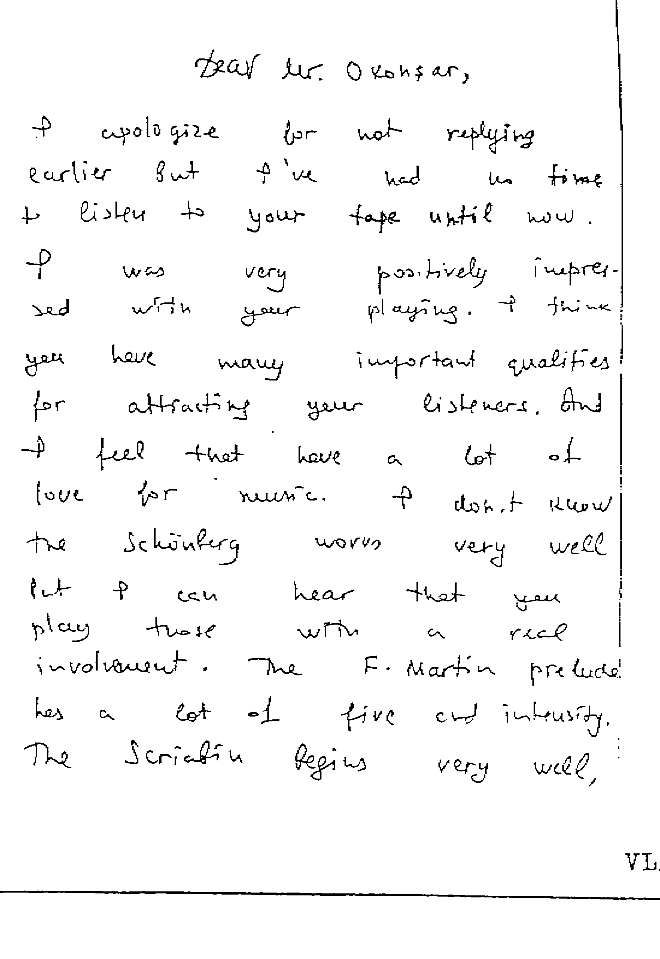 Dear Mr. Okonşar,
I apologize for not replying
earlier but I've had no time
to listen to your tape until now.
I was very positively impres-
sed with your playing. I think
you have many important qualities
for attracting your listeners. And
I feel that have a lot of
love for music. I don't know
the Schönberg works very well
but I can hear that you
play those with a real
involvement. The F. Martin prelude
has a lot of fire and intensity.
The Scriabin begins very well,
VL